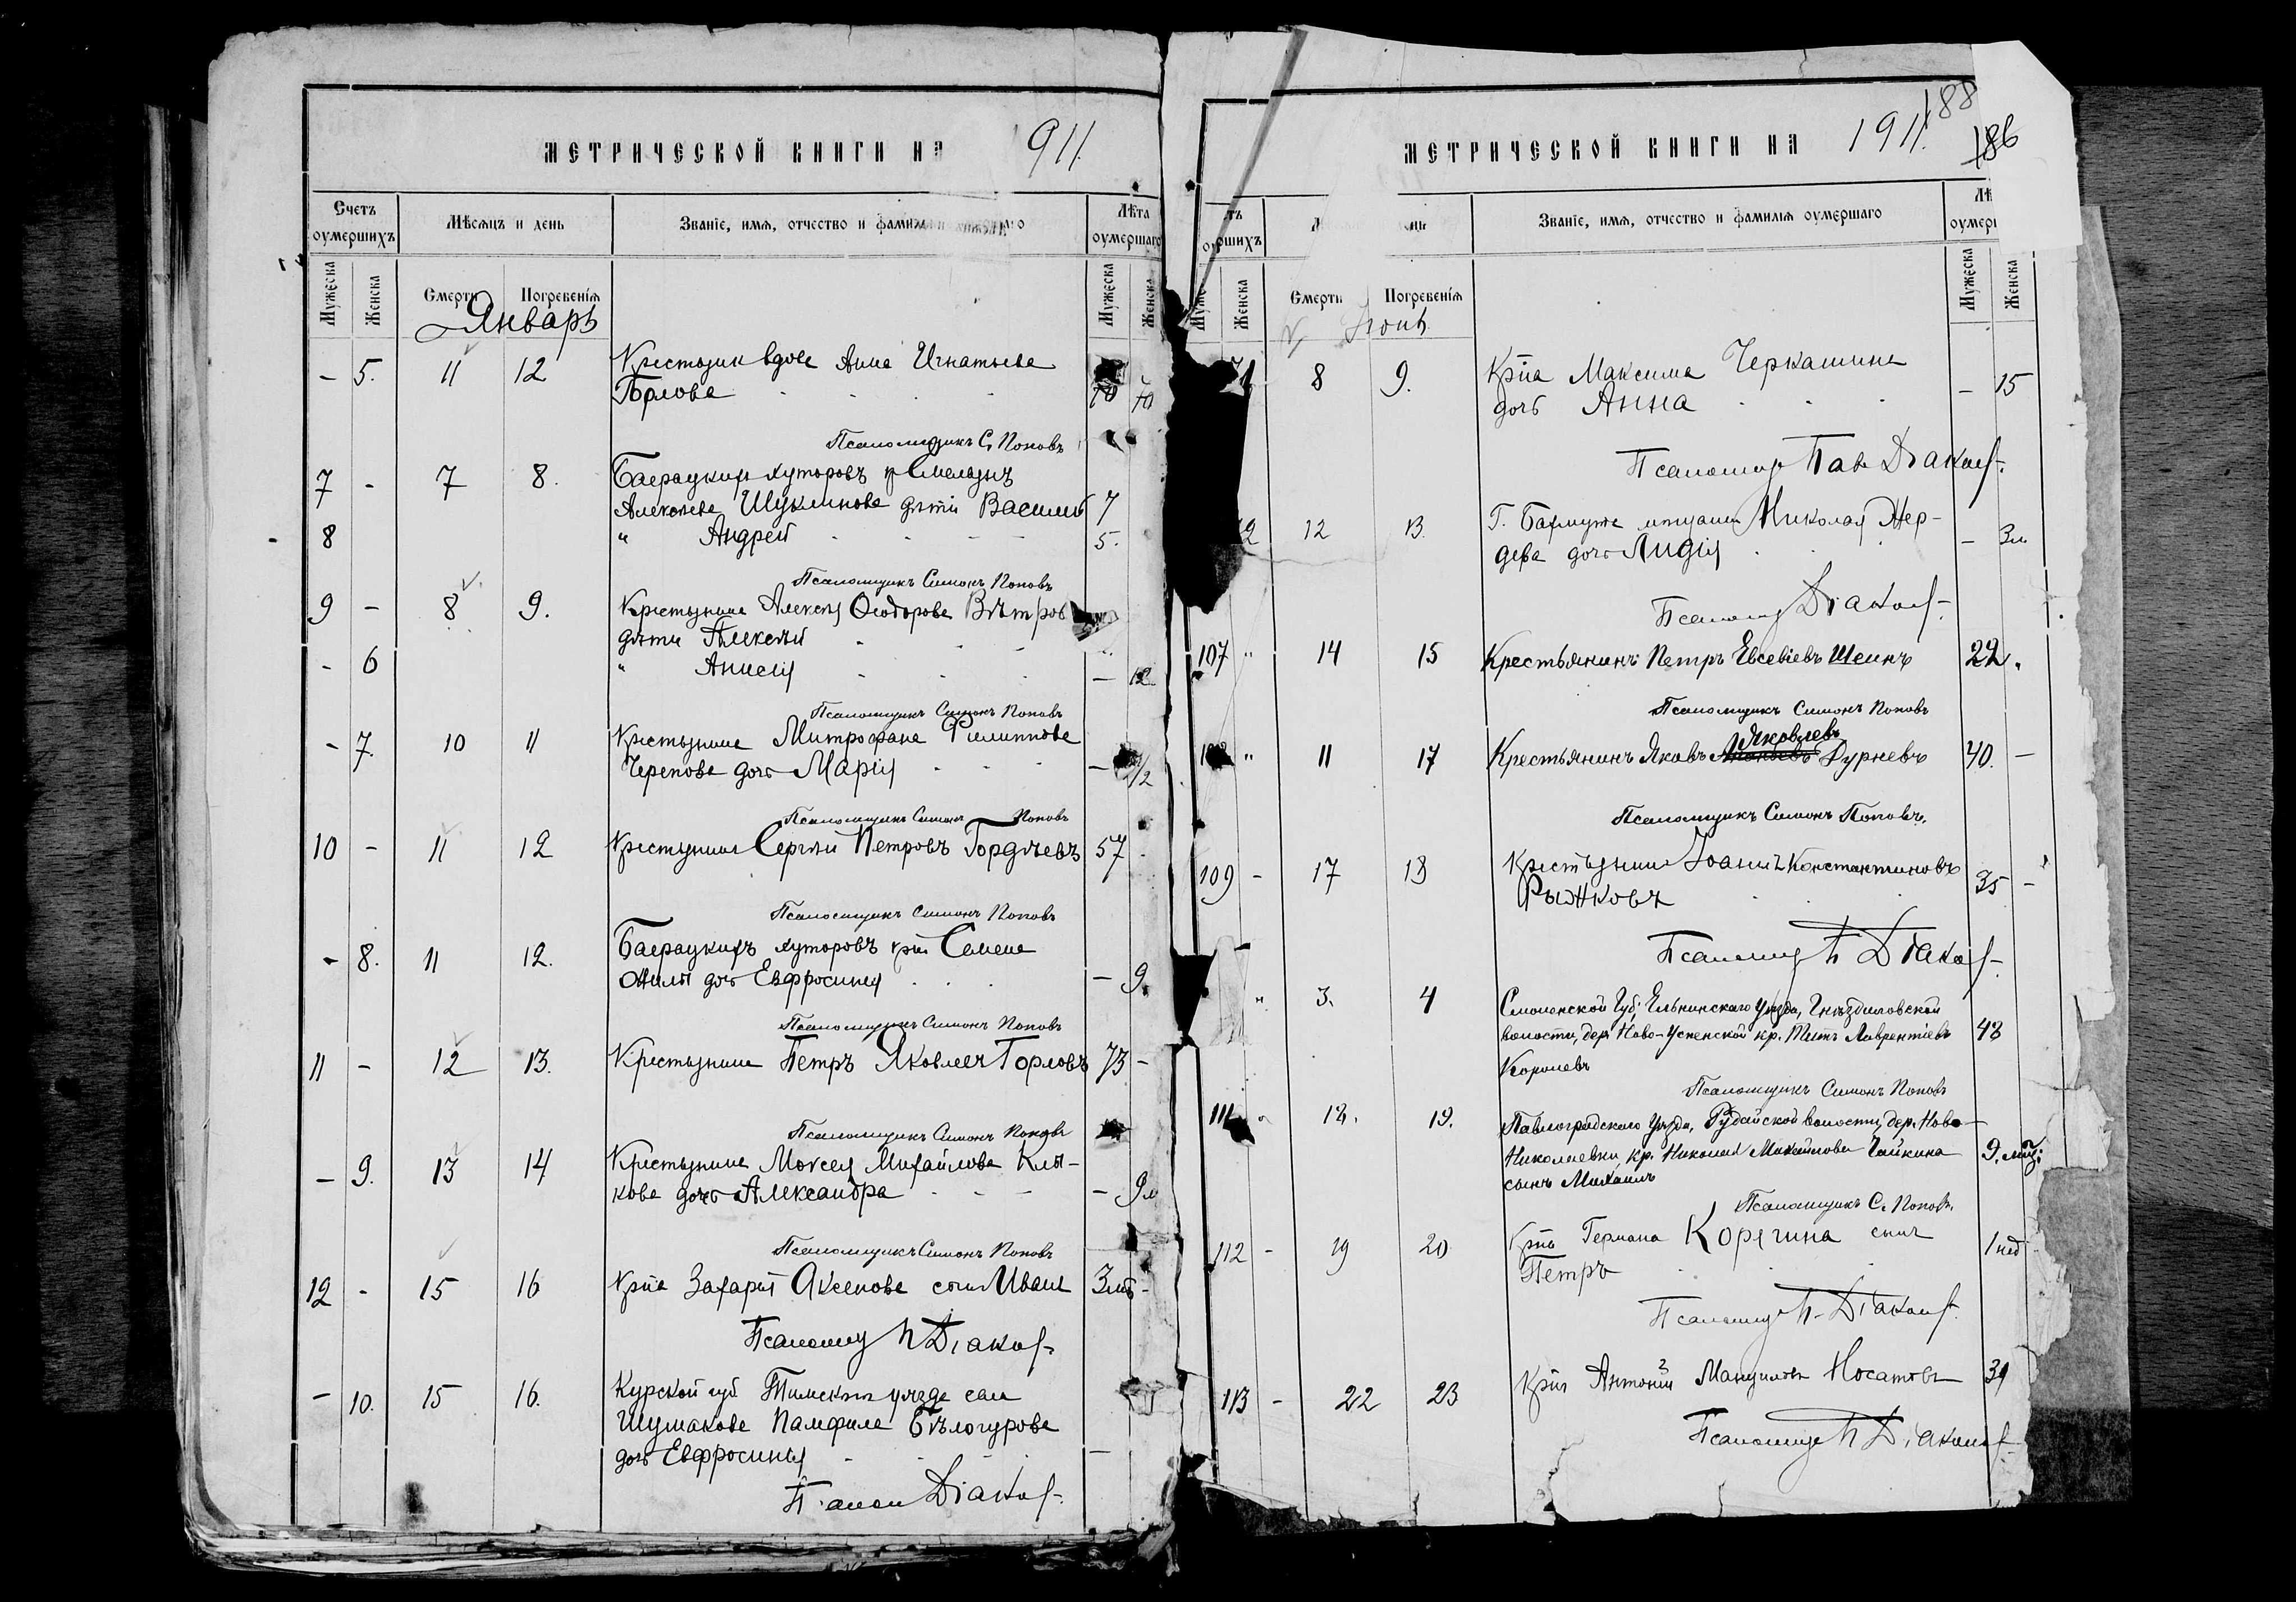 МЕТРИЧЕСКОЙ КНИГИ НА 911.
Счетъ оумершихъ
Мѣсяцъ и день
Званіе, имя, отчество и фамилія
Лѣта оумершаго
Мужеска Женска Смерти Погребенія Мужеска Женска
Январь
- 5. 11 12 Крестьянк вдова Анна Игнатьева
Горлова 70 70
Псаломщикъ С. Поповъ
7 - 7 8. Баерацкихъ хуторовъ
Алексѣева Шуклинова дѣти Василій 7
8 " Андрей 5.
Псаломщикъ Симонъ Поповъ
9 - 8 9. Крестьянина Алексѣя Ѳеодорова Вѣтров
дѣти Алексѣй
- 6 " Анисія - 12
Псаломщикъ Симонъ Поповъ
- 7. 10 11 Крестьянина Митрофана Филиппова
Черепова дочь Марія - 1/2
Псаломщикъ Симонъ Поповъ
10 - 11 12 Крестьянинъ Сергѣй Петровъ Гордѣевъ 57
Псаломщикъ Симонъ Поповъ
- 8. 11 12. Баерацкихъ хуторовъ крн Семена
дочь Евфросинія - 9.
Псаломщикъ Симонъ Поповъ
11 - 12 13. Крестьянинъ Петръ Яковлевъ Горловъ 73 -
Псаломщикъ Симонъ Поповъ
- 9. 13 14 Крестьянина Моисея Михайлова Клы-
кова дочь Александра - 9 м
Псаломщикъ Симонъ Поповъ
12 - 15 16 Крна Захарія Аксенова сынъ Иванъ -
Псаломщ П Діаков
- 10. 15 16. Курской губ Тимскаго уѣзда села
Шумакова Памфила Бѣлогурова
дочь Евфросинія -
Діаков
МЕТРИЧЕСКОЙ КНИГИ НА 1911.
188
186
Званіе, имя, отчество и фамилія оумершаго
Женска Смерти Погребенія Мужеска Женска
Іюнь.
8 9. Крна Максима Черкашина
дочь Анна - 15
Псаломщ Пав Діаков
12 13. Г. Бахмута мѣщанина Николая Жер-
дева дочь Лидія - 3 м
Псаломщ Діаков
107 " 14 15 Крестьянинъ Петръ Евсевіевъ Шеинъ 22.
Псаломщикъ Симонъ Поповъ
" 11 17 Крестьянинъ Яковъ Яковлевъ Дурневъ 40. -
Псаломщикъ Симонъ Поповъ.
109 - 17 18 Крестьянинъ Іоаннъ Константиновъ
Рыжковъ 35 -
Псаломщ П Діаков
" 3. 4 Смоленской Губ, Ельнинскаго уѣзда, Гнѣздиловской
волости, дер. Ново-Успенской кр. Титъ Лаврентіевъ 43
Королевъ
Псаломщикъ Симонъ Поповъ
111 18. 19. Павлоградскаго уѣзда, волости, дер. Ново-
Николаевки, кр. Николая Михайлова Чайкина 9. мц:
сынъ Михаилъ
Псаломщикъ С. Поповъ.
112 - 19 20 Крнъ Германа Корягина сынъ 1 нед
Петръ
Псаломщ П. Діаков
113 - 22 23 Крнъ Антоній Мануиловъ Носатовъ 39
Псаломщ П Діаков